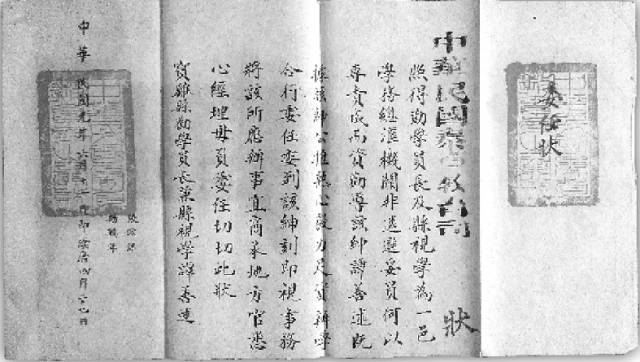 委任狀
中華民國秦省教育司
狀
照得勸學員長及縣視學為一邑
學務總滙機關非遴選妥員何以
專責成而資勸導該紳譚善述既
據該紳公推熱心毅力足資辦學
合行委任委到該紳刻即視事務
將該所應辦事宜商承地方官悉
心經理毋負委任切切此狀
寶雞縣勸學員長兼縣視學譚善述
中華民國元年六月十二日即陰曆四月廿七日